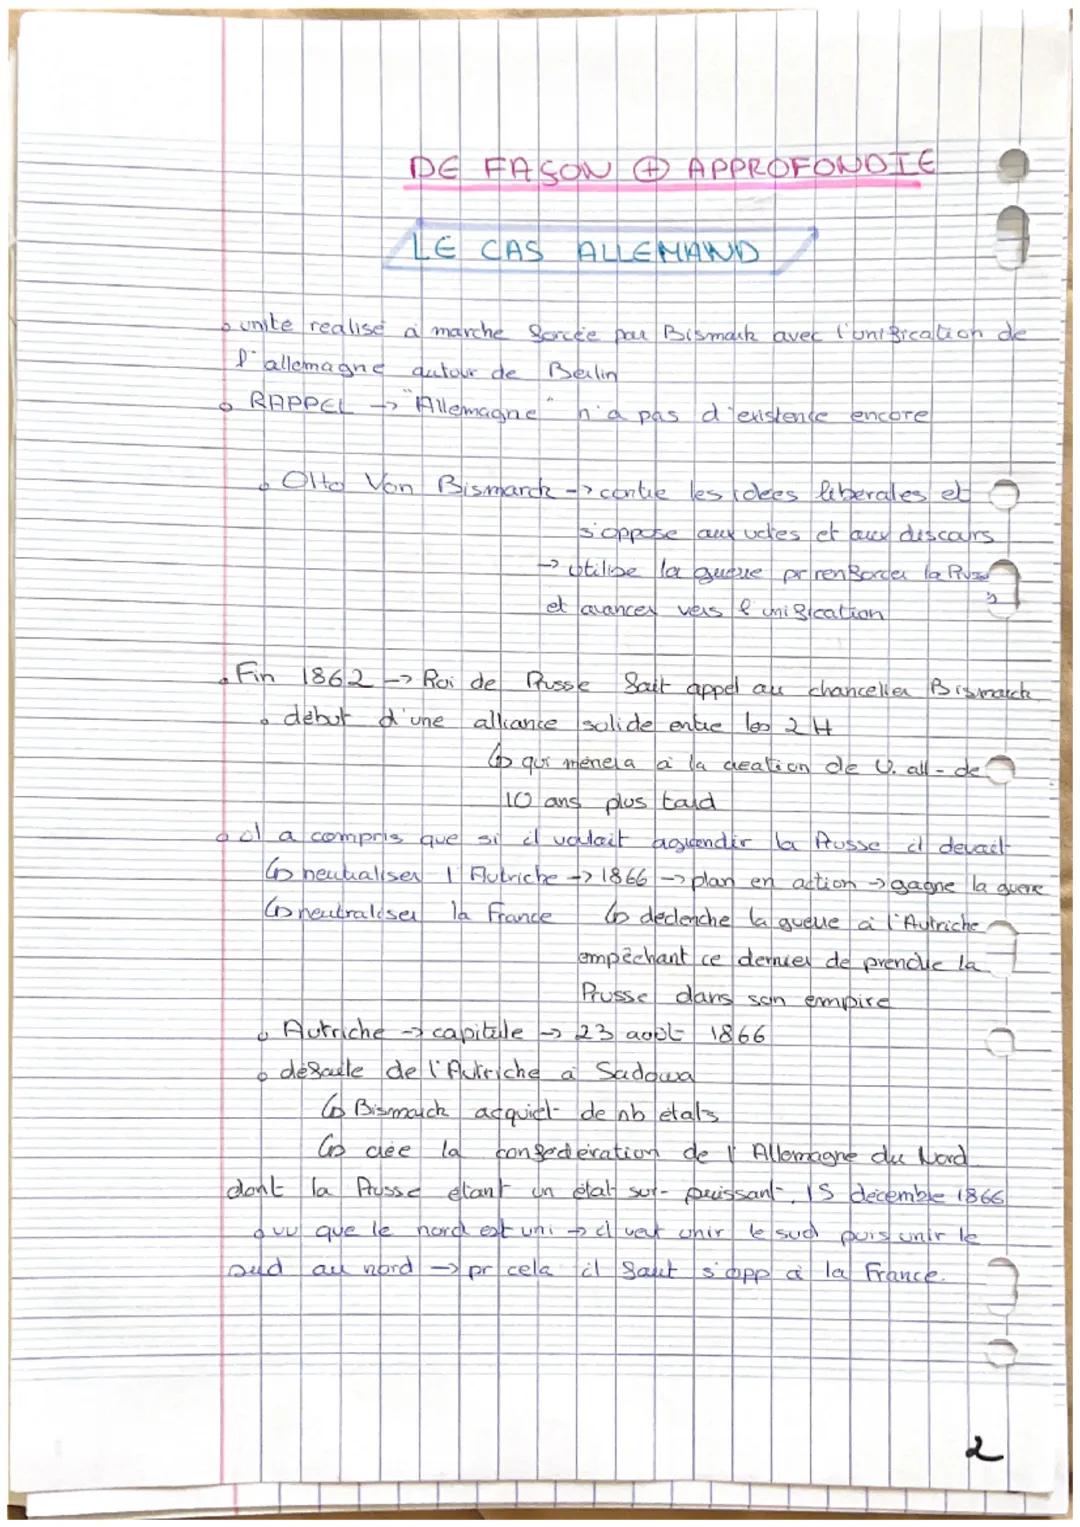 DE FAÇON ⊕ APPROFONDIE
LE CAS ALLEMAND
unite realisé à marche forcée par Bismark avec l'unification de
l'allemagne autour de Berlin
RAPPEL → "Allemagne" n'a pas d'existence encore
Otto Von Bismarck → contre les idées libérales et
s'oppose aux votes et aux discours
→ utilise la guerre pr renforcer la Prusse
et avancer vers l'unification
Fin 1862 → Roi de Prusse fait appel au chancelier Bismarck
début d'une alliance solide entre les 2 H
↳ qui mènera à la création de U. all-de
10 ans plus tard
il a compris que si il voulait agrandir la Prusse il devait
↳ neutraliser l'Autriche → 1866 → plan en action → gagne la guerre
↳ neutraliser la France ↳ déclenche la guerre à l'Autriche
empêchant ce dernier de prendre la
Prusse dans son empire
Autriche → capitule → 23 août 1866
défaite de l'Autriche à Sadowa
↳ Bismarck acquiet de nb états
↳ crée la confédération de l'Allemagne du Nord
dont la Prusse étant un état sur-puissant, 15 décembre 1866
vu que le nord est uni → il veut unir le sud puis unir le
sud au nord → pr cela il faut s'opp à la France.
2